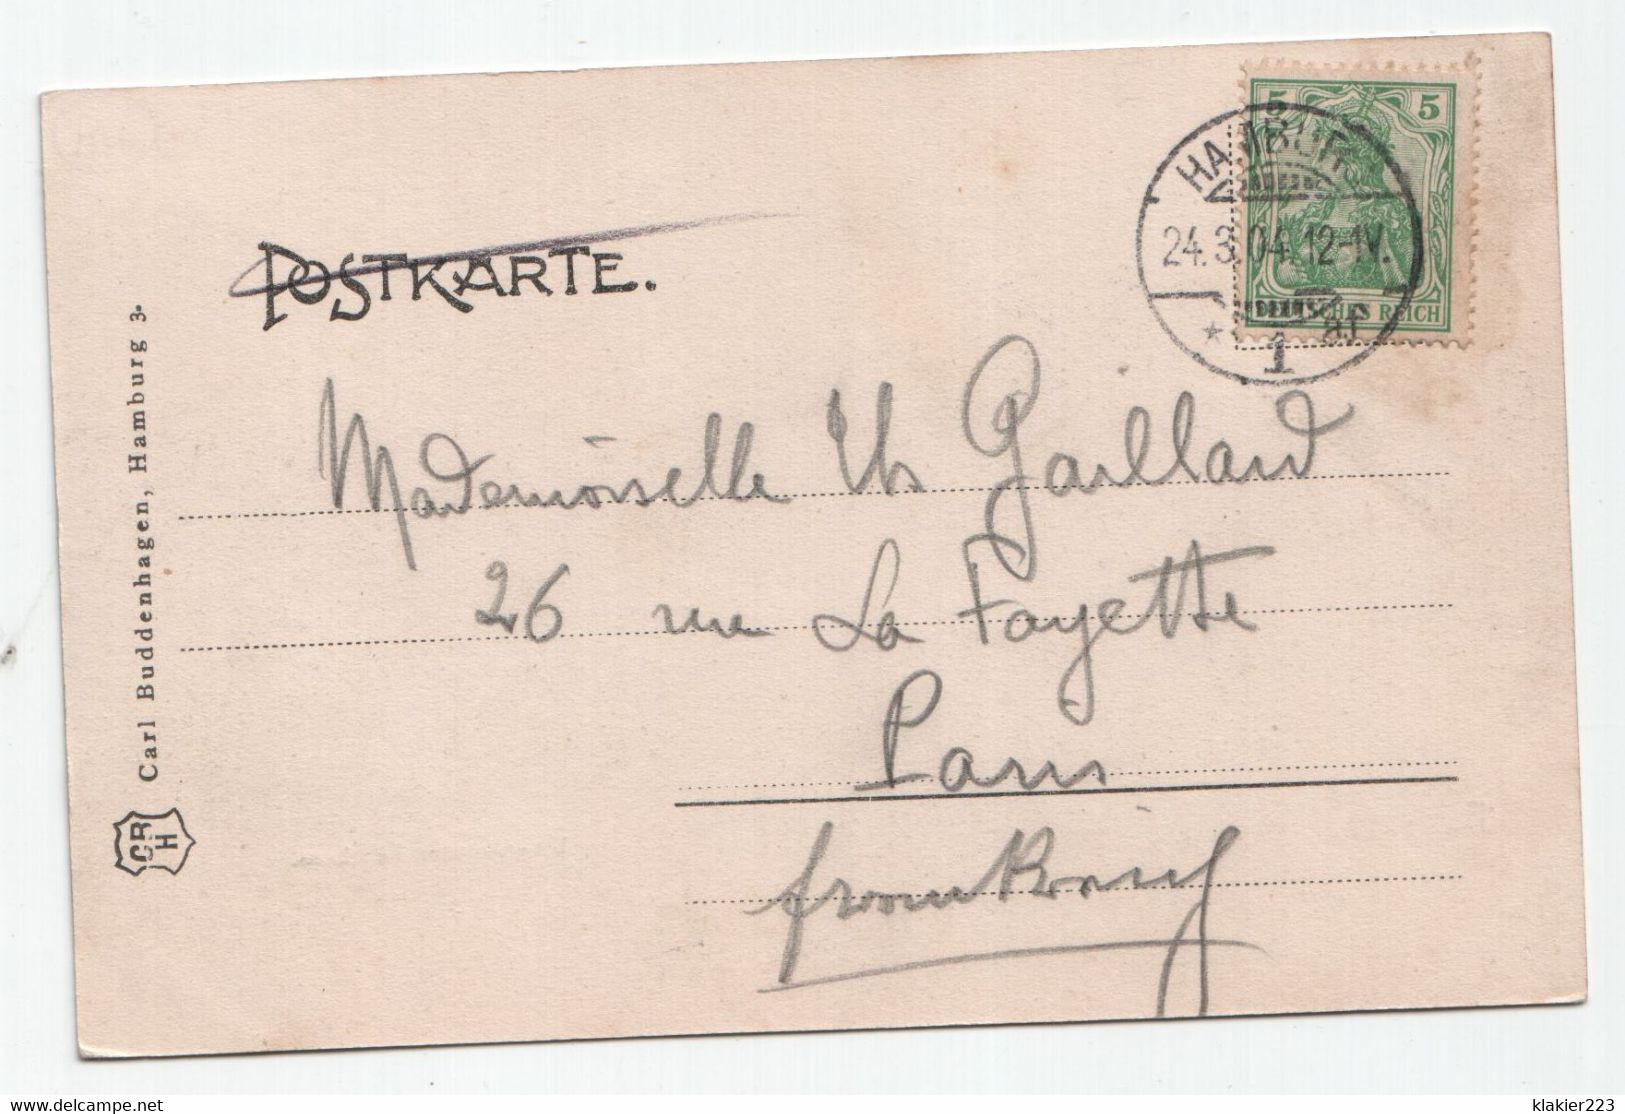 POSTKARTE.
5 5
DEUTSCHES REICH
HAMBURG
24.3.04.12-1V.
* 1 af
Mademoiselle Th Gaillard
26 rue La Fayette
Paris
frankreich
Carl Buddenhagen, Hamburg 3.
CB
H
delcampe.net
klakier223